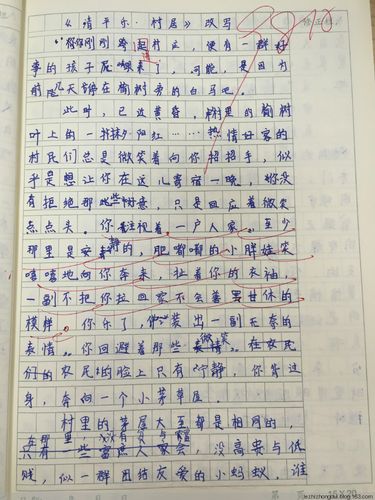 《清平乐·村居》改写
你刚刚跨进村庄，便有一群好
事的孩子尾 来了，可能，是因为
那 天 在榆树旁的白马吧。
此时，已边黄昏，村里的榆树
叶上的一抹 阳红……热情好客的
村民们总是微笑着向你招招手，似
乎是想让你在这儿寄宿一晚，你没
有拒绝那些 意，只是回应着微笑
点点头。你注视着一户人家，至少
那里是安静的，肥嘟嘟的小胖娃笑
嘻嘻地向你奔来，扯着你的衣袖，
一副不把你拉回家不会善罢甘休的
模样。你乐了，你装出一副无奈的
表情。你回避着那些微笑。在农民
们的 的脸上只有宁静，你背过
身，奔向一个小茅草屋。
村里的茅屋大至都是相同的，
在那里， 没高贵与低
贱，似一群团结友爱的小蚂蚁，谁
修正栏
lezhizhongdui.blog.163.com